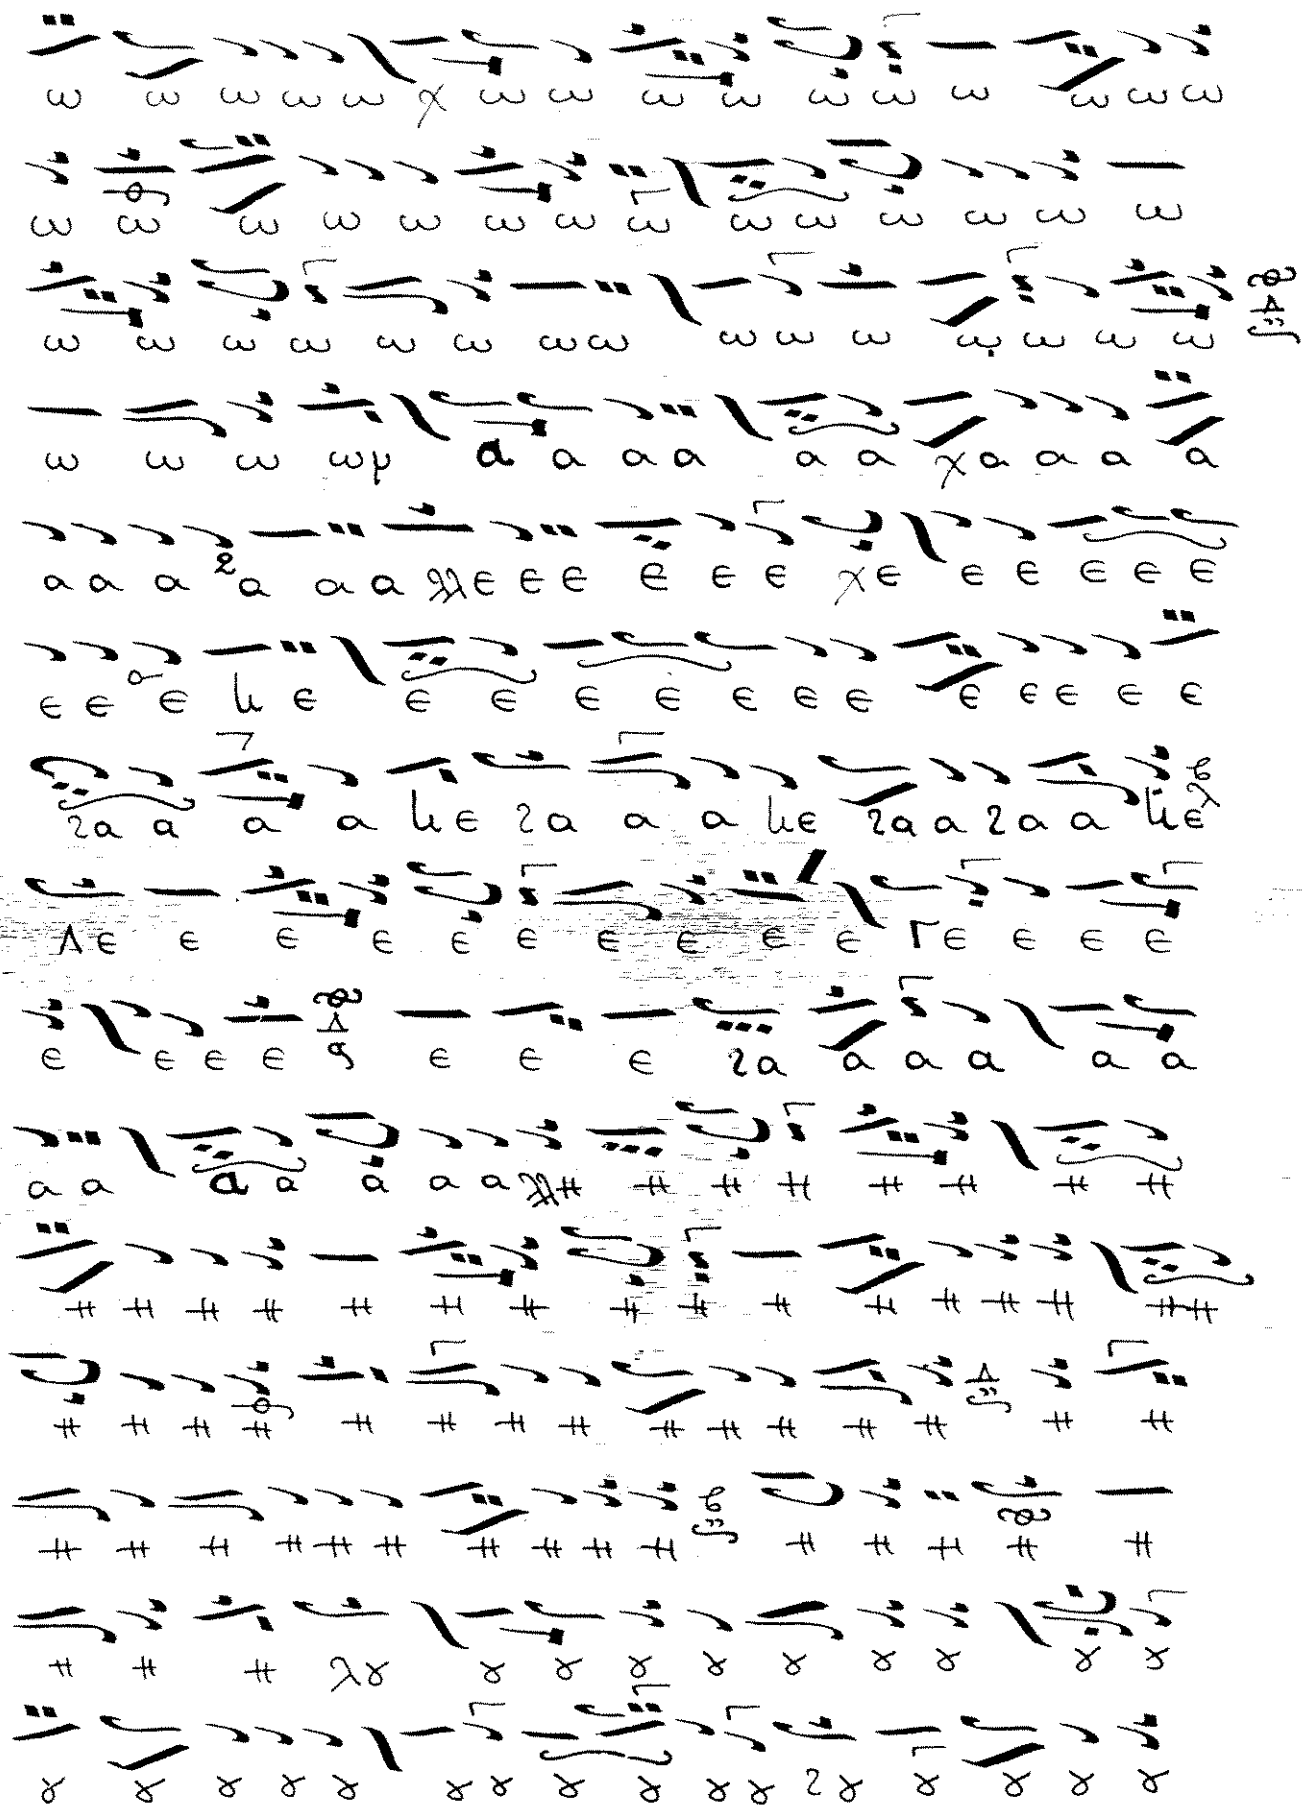 ω ω ω ω ω χ ω ω ω ω ω ω ω ω ω ω
ω ω ω ω ω ω ω ω ω ω ω ω ω ω
ω ω ω ω ω ω ω ω ω ω ω ω ω ω ω
ω ω ω ωμ α α α α α α χα α α α
α α α α α α λλε ε ε ε ε ε χε ε ε ε ε ε
ε ε ε νε ε ε ε ε ε ε ε ε ε ε ε ε
2α α α α νε 2α α α νε 2α α 2α α νε
λε ε ε ε ε ε ε ε ε ε Γε ε ε ε
ε ε ε ε ε ε ε 2α α α α α α
α α α α α α α λλη η η η η η η η
η η η η η η η η η η η η η η η η
η η η η η η η η η η η η η η η
η η η η η η η η η η η η η η η
η η η λȣ ȣ ȣ ȣ ȣ ȣ ȣ ȣ ȣ ȣ
ȣ ȣ ȣ ȣ ȣ ȣ ȣ ȣ ȣ ȣ ȣ 2ȣ ȣ ȣ ȣ ȣ